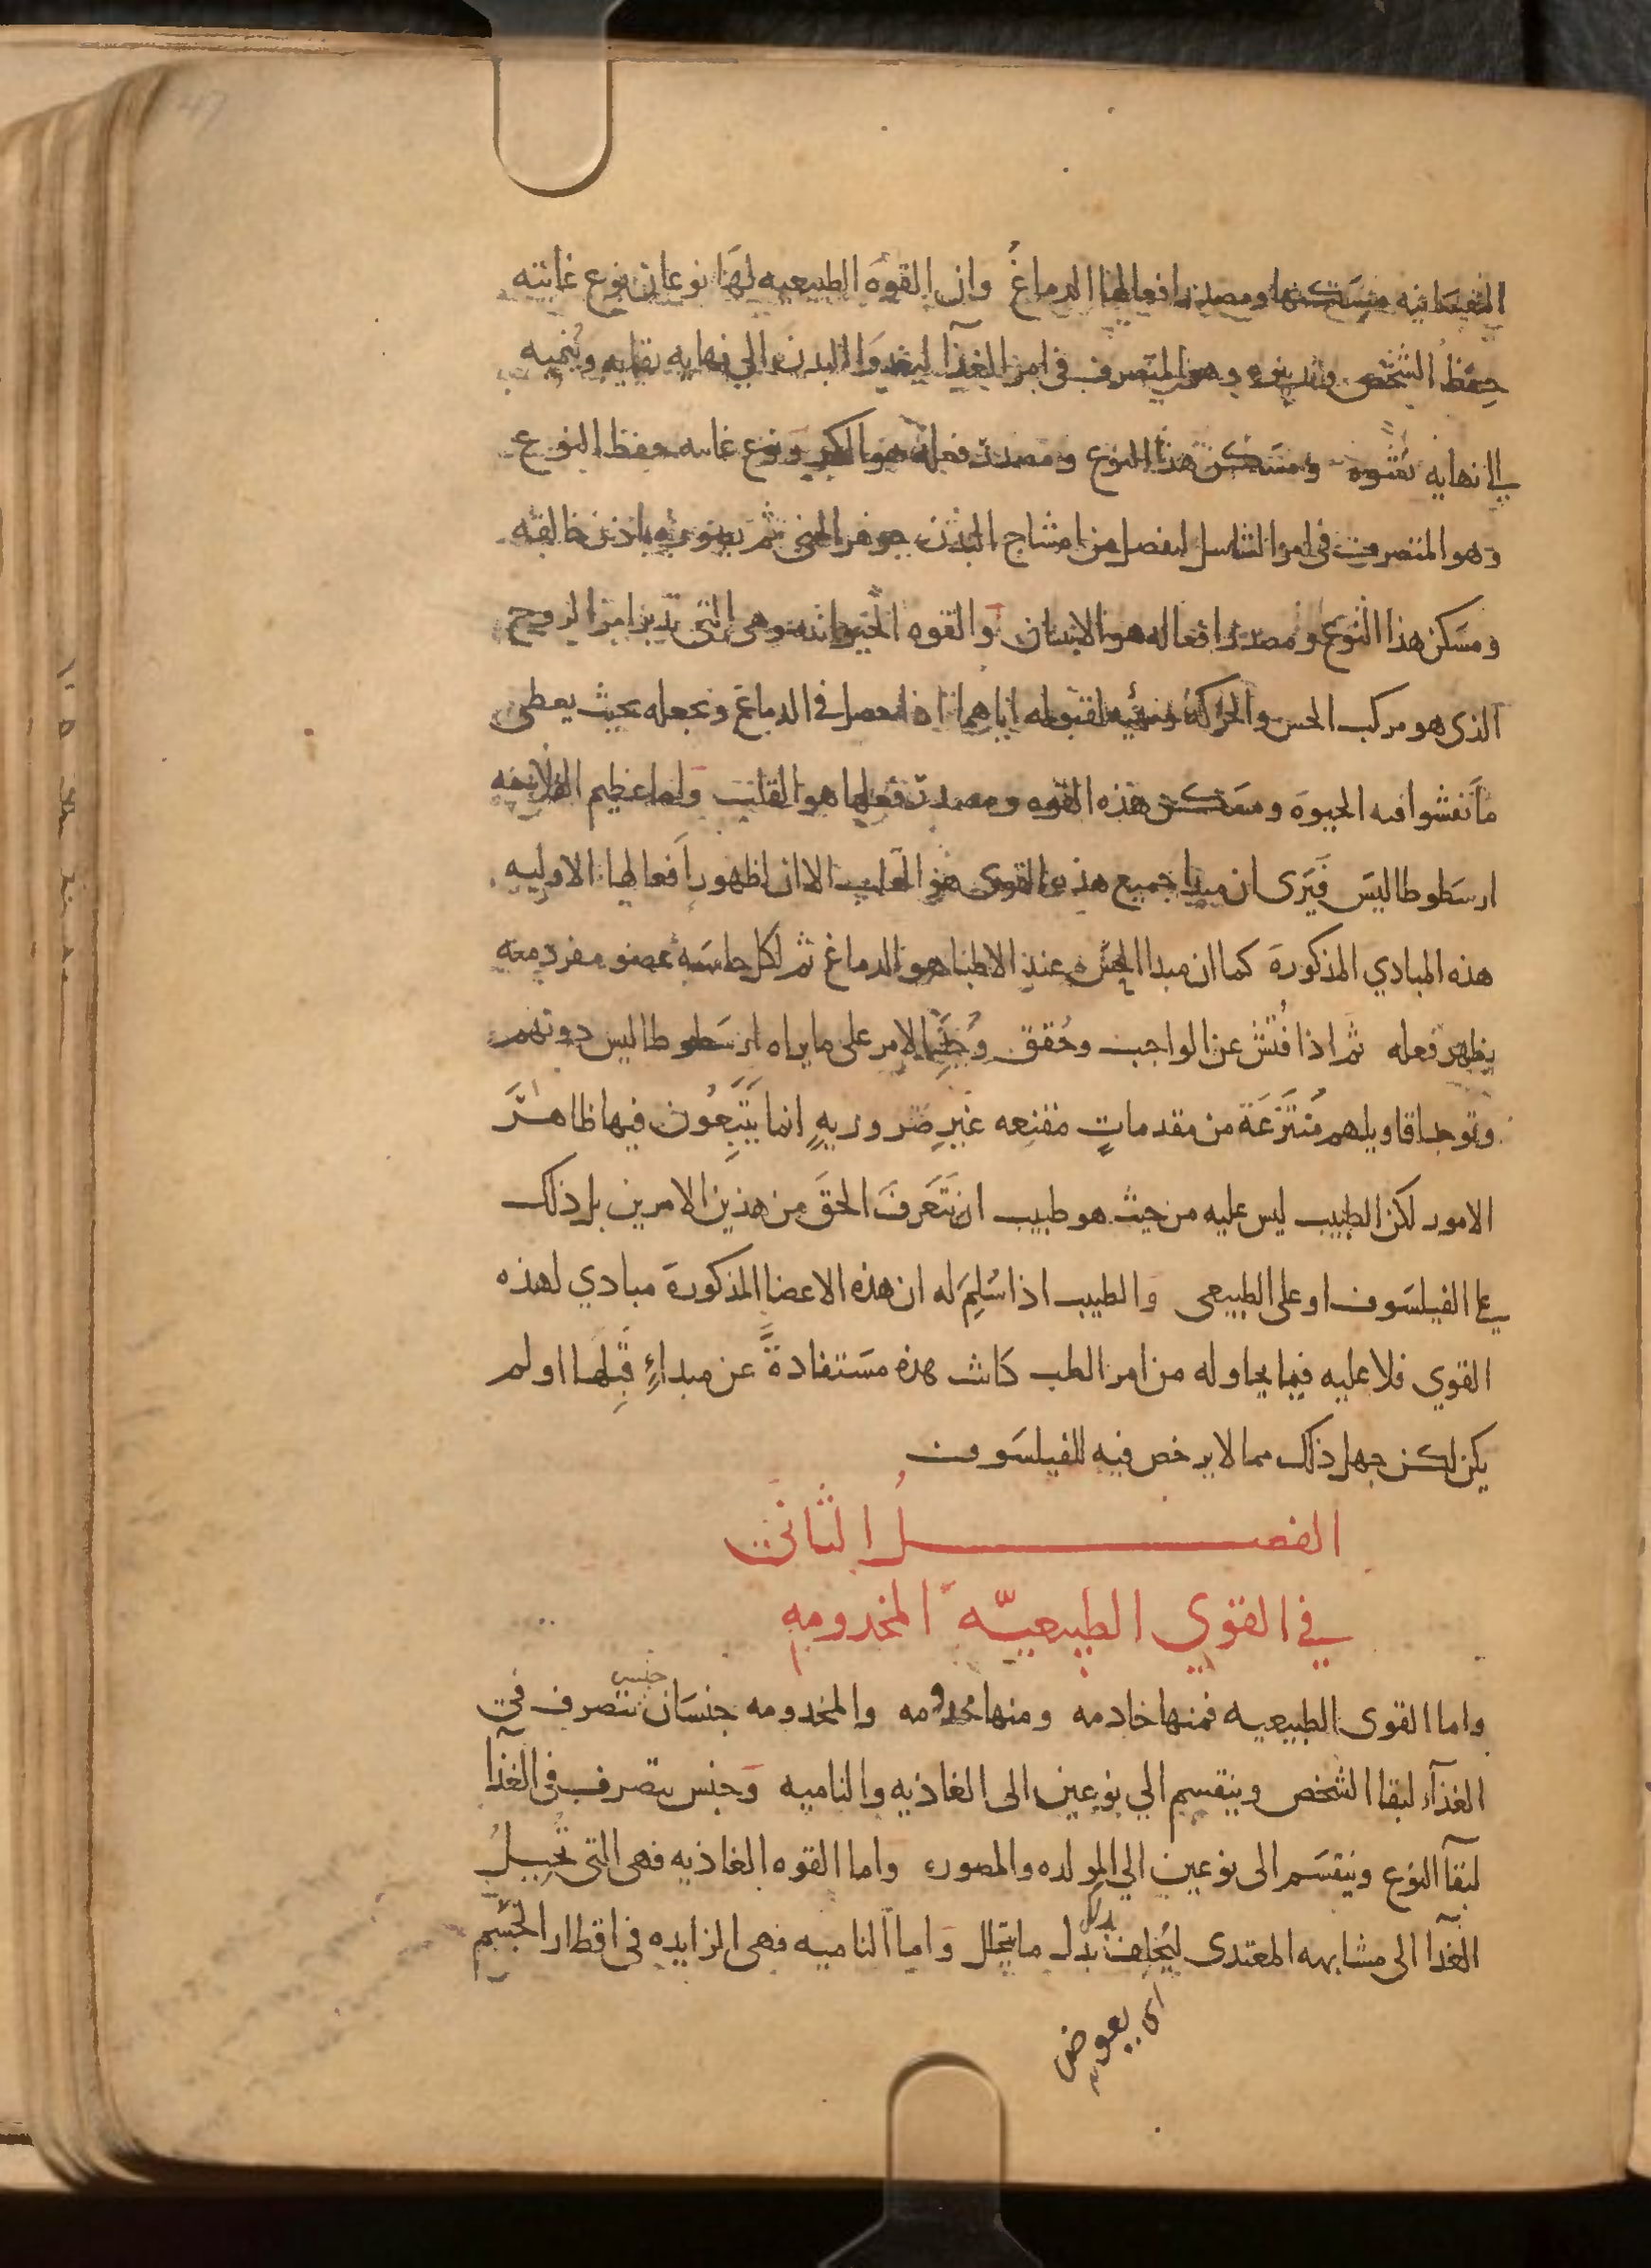 النفسانيه مسكنها ومصدر افعالها الدماغ وان القوه الطبيعيه لها نوعان نوع غايته
حفظ الشخص وتدبيره وهو المتصرف في امر الغذآ ليغدوا البدن الي نهايه بقايه وينميه
الي نهايه نشوه ومسكن هذا النوع ومصدر فعله هو الكبد ونوع غايته حفظ النوع
وهو المتصرف في امر التناسل ليفصل من امشاج البدن جوهر المني ثم يصوره باذن خالقه
ومسكن هذا النوع ومصدر افعاله هو الانثيان والقوه الحيوانيه وهي التي تدبر امر الروح
الذي هو مركب الحس والحركه وتهيئه لقبوله اياهما اذا حصل في الدماغ وتجعله بحيث يعطي
ما نفشوا فيه الحيوه ومسكن هذه القوه ومصدر فعلها هو القلب واما عظيم الفلاسفه
ارسطوطاليس فيرى ان مبدا جميع هذه القوى هو القلب الا ان لظهور افعالها الاوليه
هذه المبادي المذكورة كما ان مبدا الحس عند الاطبا هو الدماغ ثم لكل حاسة عضو مفرد معه
يظهر فعله ثم اذا فُتش عن الواجب وحُقق وُجد الامر على ما يراه ارسطوطاليس دونهم
وتوجد اقاويلهم مُنتزعة من مقدماتٍ مقنعه غيرِ ضروريهٍ انما يتبعون فيها ظاهر
الامور لكن الطبيب ليس عليه من حيث هو طبيب ان يتعرف الحق من هذين الامرين بل ذلك
على الفيلسوف او على الطبيعي والطبيب اذا سُلِمَ له ان هذه الاعضا المذكورة مبادي لهذه
القوي فلا عليه فيما يحاوله من امر الطب كانت هذه مستفادةً عن مبداءٍ قبلها او لم
يكن لكن جهل ذلك مما لا يرخص فيه للفيلسوف
الفصل الثاني
في القوي الطبيعيّه المخدومه
واما القوى الطبيعيه فمنها خادمه ومنها مخدومه والمخدومه جنسان جنس تتصرف في
الغذآء لبقا الشخص وينقسم الي نوعين الى الغاذيه والناميه وجنس يتصرف في الغذآ
لبقآ النوع وينقسم الى نوعين الي المولده والمصوره واما القوه الغاذيه فهى التى تُحيلُ
الغذآ الى مشابهه المعتدى ليُخلف بدل بدل ما يتحلل واما الناميه فهى الزايده في اقطار الجسم
اى يعوض